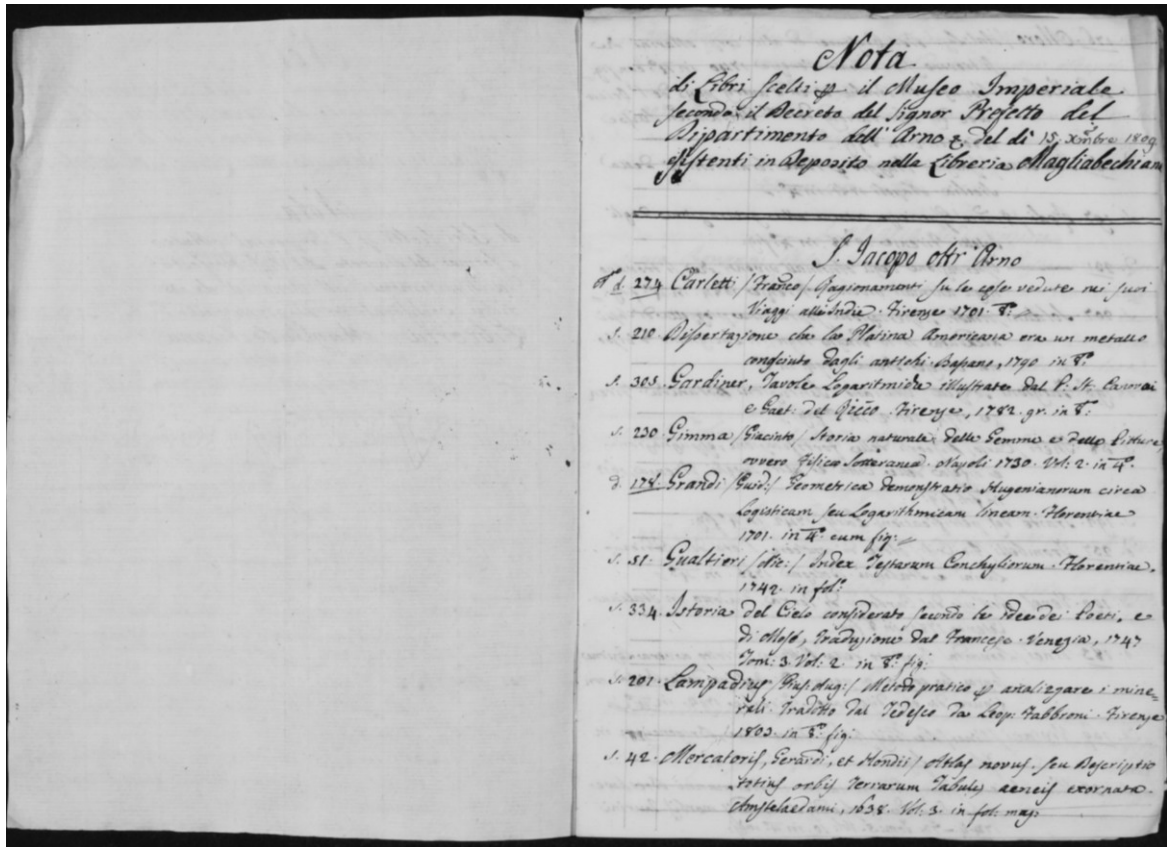 Nota
di Libri scelti p il Museo Imperiale
secondo il Decreto del Signor Prefetto del
Dipartimento dell' Arno &. del dì 15. Xmbre 1809
esistenti in Deposito nella Libreria Magliabechiana
S. Jacopo oltr'Arno
d. 274 Carletti /Franco/ Ragionamenti su le cose vedute nei suoi
Viaggi alle Indie. Firenze 1701. 8.º
s. 210 Dissertazione che la Platina Americana era un metallo
conosciuto dagli antichi. Bassano, 1790 in 8.º
s. 305. Gardiner, Tavole Logaritmiche illustrate dal P. St. Canovai
e Gaet: del Ricco. Firenze, 1782. gr. in 8.º
s. 230 Gimma /Giacinto/ Storia naturale delle Gemme e delle Pietre,
ovvero Fisica Sotteranea. Napoli 1730. Vol: 2. in 4.º
d. 178. Grandi /Guid:/ Geometrica demonstratio Hugenianorum circa
Logisticam seu Logarithmicam lineam. Florentiae
1701. in 4.º cum fig:
s. 51. Gualtieri /Nic:/ Index Testarum Conchyliorum. Florentiae.
1742. in fol:
s. 334. Istoria del Cielo considerato secondo le idee dei Poeti, e
di Mosè, Traduzione dal Francese. Venezia, 1747
Tom: 3. Vol: 2. in 8.º fig:
s. 201. Lampadius / Metodo pratico p analizzare i mine-
rali. Tradotto dal Tedesco da Leop. Fabbroni. Firenze
1803. in 8.º fig:
s. 42. Mercatoris, Gerardi, et Hondii / Atlas novus, seu Descriptio
totius orbis Terrarum Tabulis aeneis exornata.
Amstelaedami, 1638. Vol: 3. in fol: mag: